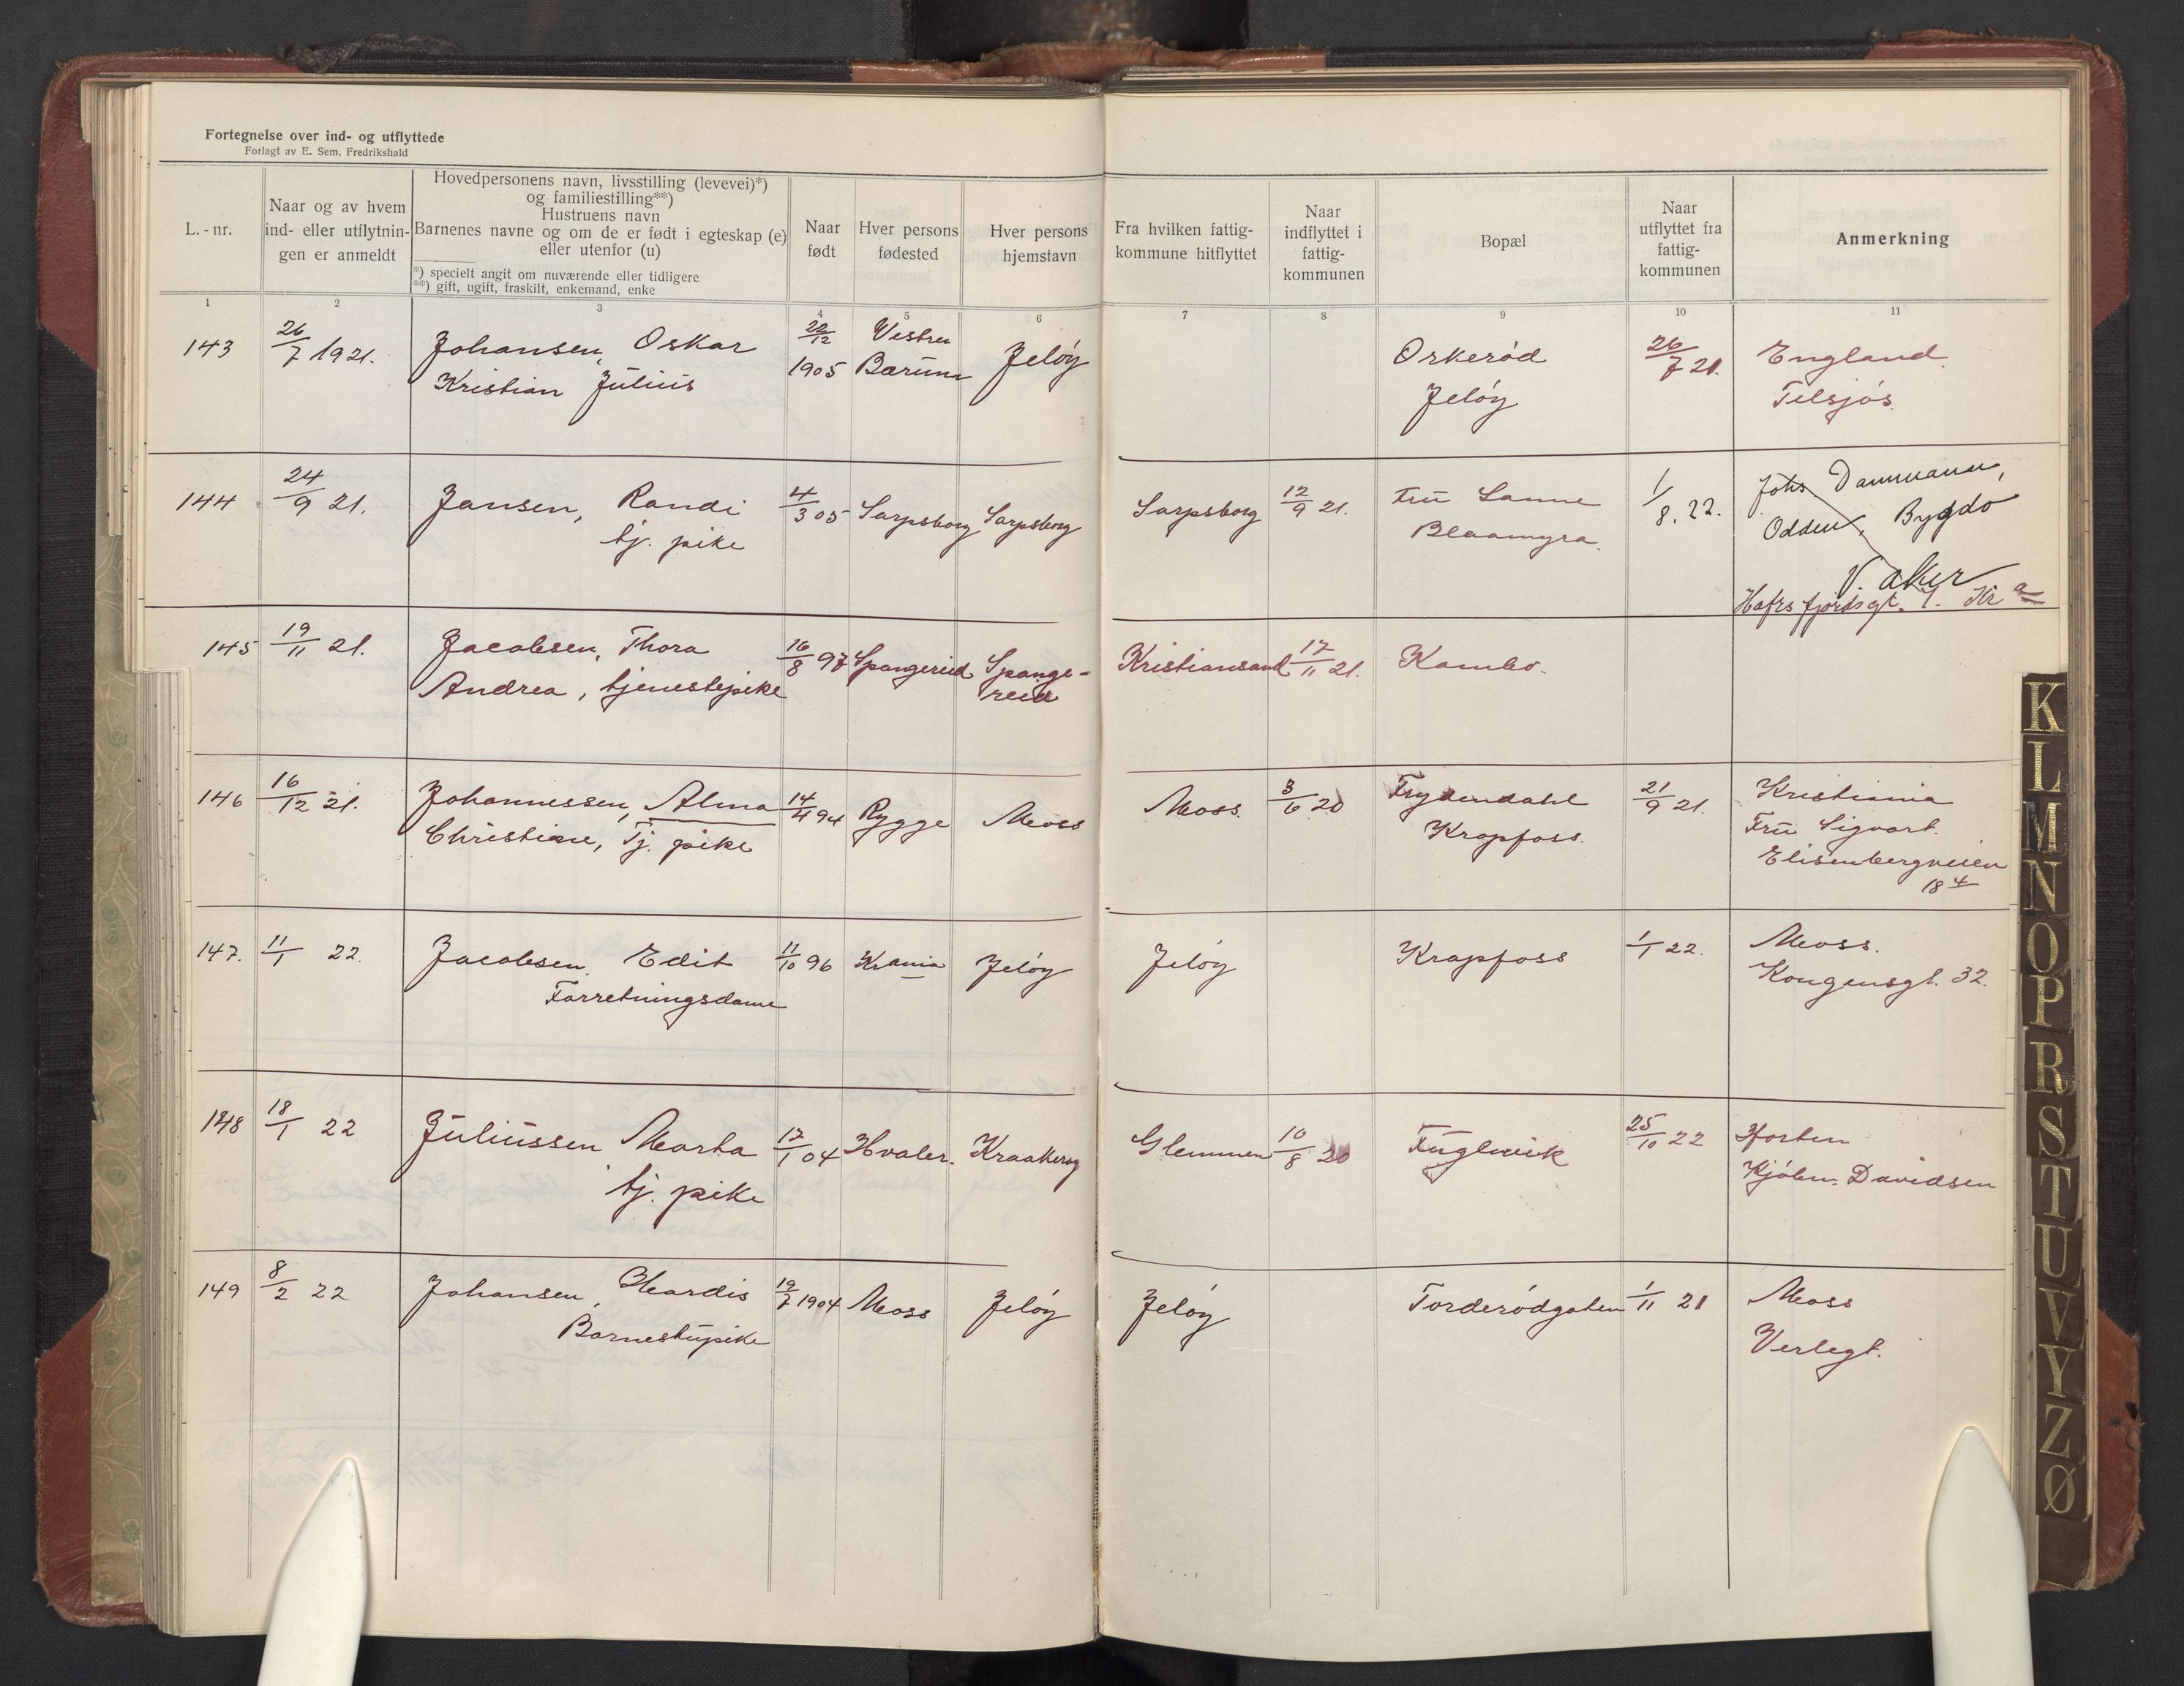 Fortegnelse over ind- og utflyttede
Forlagt av E. Sem, Fredrikshald
L.-nr.
Naar og av hvem
ind- eller utflytnin-
gen er anmeldt
Hovedpersonens navn, livsstilling (levevei)*)
og familiestilling**)
Hustruens navn
Barnenes navne og om de er født i egteskap (e)
eller utenfor (u)
*) specielt angit om nuværende eller tidligere
**) gift, ugift, fraskilt, enkemand, enke
Naar
født
Hver persons
fødested
Hver persons
hjemstavn
Fra hvilken fattig-
kommune hitflyttet
Naar
indflyttet i
fattig-
kommunen
Bopæl
Naar
utflyttet fra
fattig-
kommunen
Anmerkning
1 2 3 4 5 6 7 8 9 10 11
143 26/7 1921. Johansen, Oskar 22/12 Vestre Jeløy Orkerød 26/7 21. England.
Kristian Julius 1905 Bærum Jeløy Tilsjøs.
144 24/9 21. Jansen, Randi 4/3 05 Sarpsborg Sarpsborg Sarpsborg 12/9 21. Fru Sanne 1/8. 22. Johs. Dammann,
tj. pike Blaamyra. Odden, Bygdø
V. Aker
Hafrsfjordsgt. 7. Kra
145 19/11 21. Jacobsen, Thora 16/8 97 Spangereid Spange- Kristiansand 17/11 21. Kambo.
Andrea, tjenestepike reid
146 16/12 21. Johannessen, Alma 14/4 94 Rygge Moss Moss. 3/6 20 Frydendahl 21/9 21. Kristiania
Christine, Tj. pike Krapfoss. Fru Sigvart.
Elisenbergveien
18 4
147. 11/1 22. Jacobsen, Edit 11/10 96 Krania Jeløy Jeløy Krapfoss 1/1 22. Moss.
Forretningsdame Kongensgt. 32.
148 18/1 22 Juliussen Marta 17/1 04 Hvaler. Kraakerøy Glemmen 10/8 20 Fuglevik 25/10 22 Horten
tj. pike Kjøbm. Davidsen
149 8/2 22 Johansen, Hardis 19/7 1904 Moss Jeløy Jeløy Torderødgaten 1/11 21 Moss
Barnestupike Verlegt.
K
L
M
N
O
P
R
S
T
U
V
Y
Z
Ø